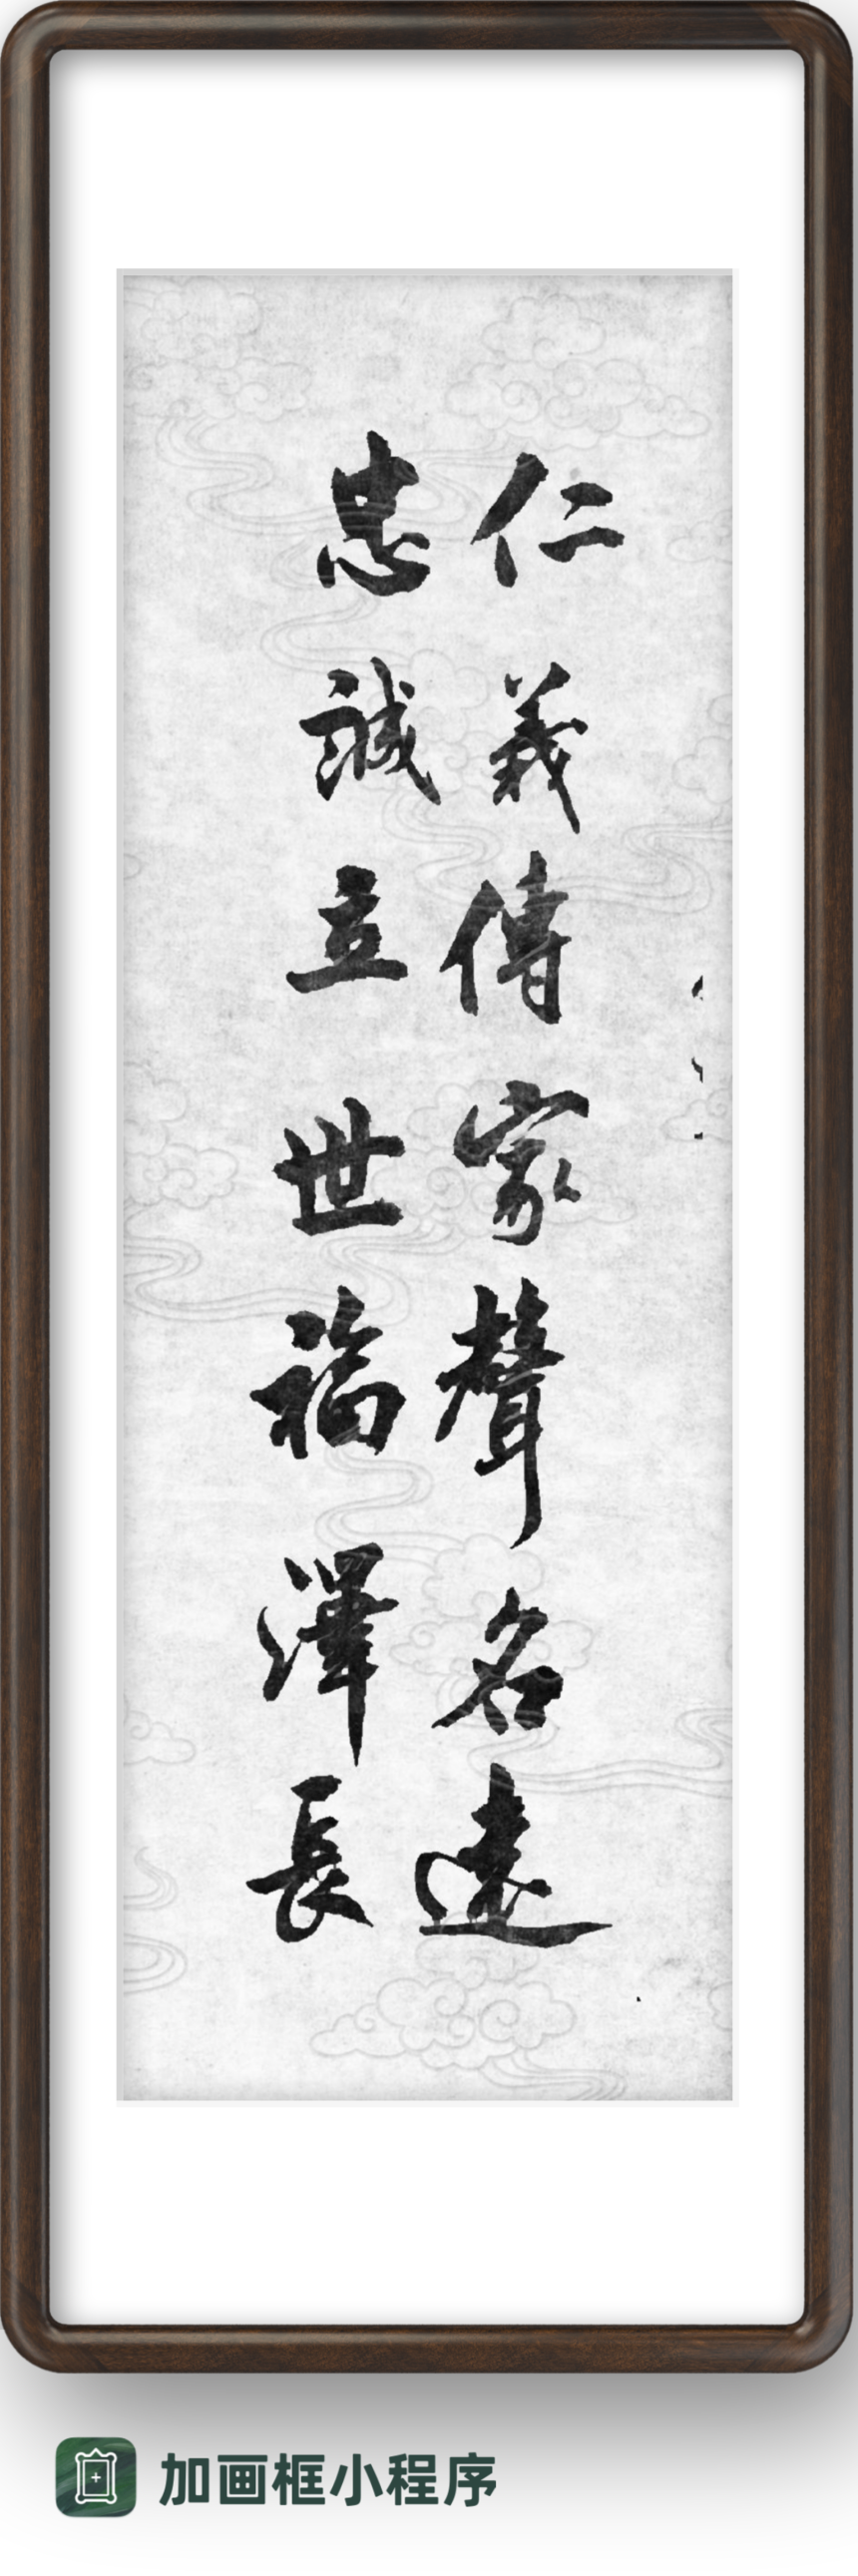 仁義傳家聲名遠
忠誠立世福澤長
加画框小程序